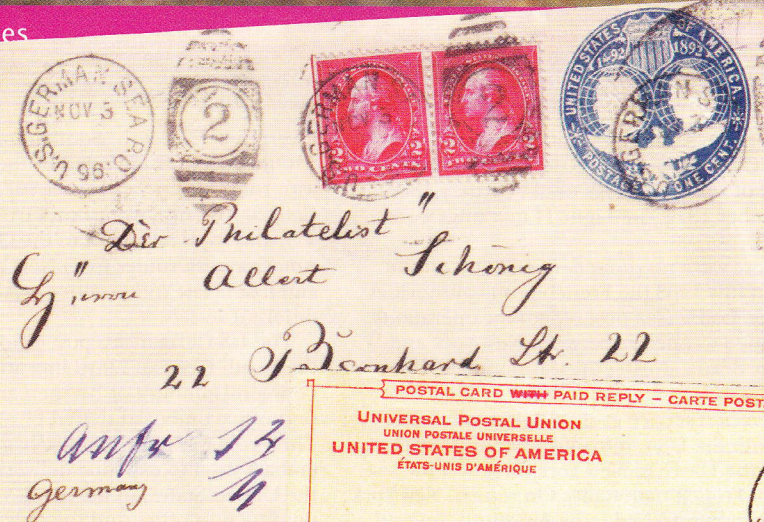 es
U.S. GERMAN SEA P.O.
NOV 3
96
2
2 TWO CENTS 2
2 TWO CENTS 2
UNITED STATES OF AMERICA
1492 1892
POSTAGE ONE CENT.
"Der Philatelist"
Herrn Albert Schönig
22 Bernhard Str. 22
Germany
POSTAL CARD WITH PAID REPLY – CARTE POST
UNIVERSAL POSTAL UNION
UNION POSTALE UNIVERSELLE
UNITED STATES OF AMERICA
ÉTATS-UNIS D'AMÉRIQUE